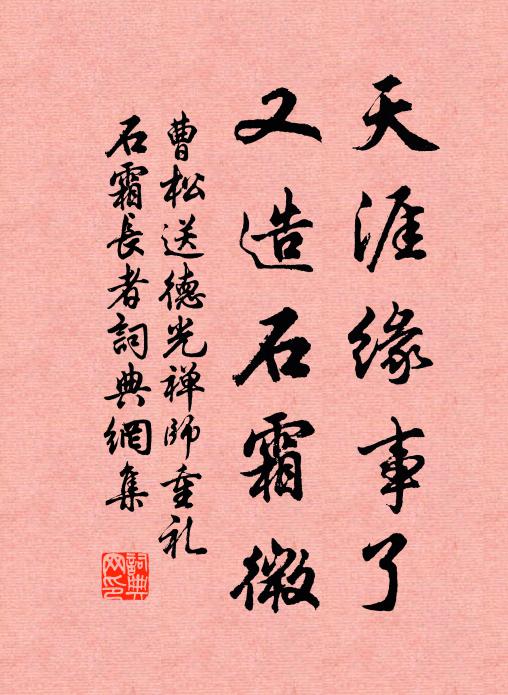 天涯緣事了
又造石霜微
曹松送德光禅師重礼
石霜長者詞典網集
詞典网印